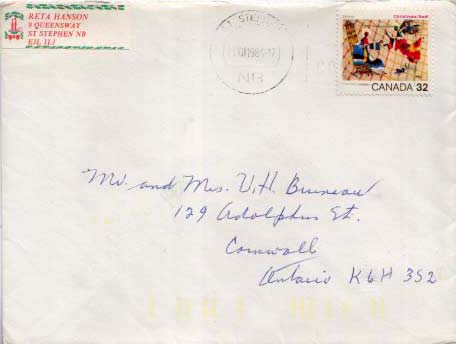 RETA HANSON
9 QUEENSWAY
ST STEPHEN NB
E3L 1L1
NB
Christmas/Noël
CANADA 32
Mr. and Mrs. V.H. Bruneau
129 Adolphus St.
Cornwall
Ontario K6H 3S2